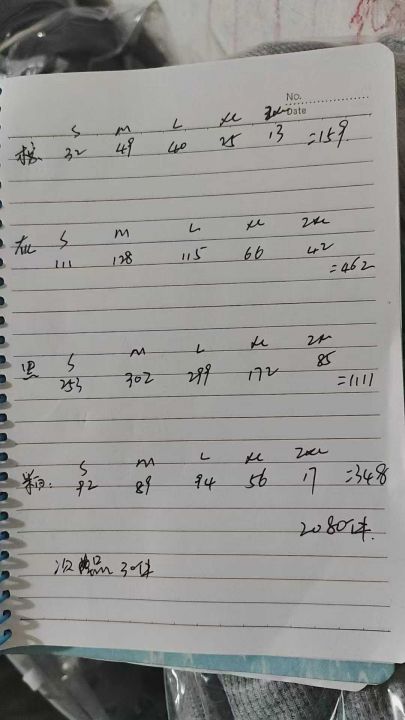 No.
Date
S M L XL 2XL
32 49 40 25 13 =159
S M L XL 2XL
灰 111 128 115 66 42
=462
S M L XL 2XL
黑 253 302 299 172 85
=1111
S M L XL 2XL
92 89 94 56 17 =348
2080件.
次 30件